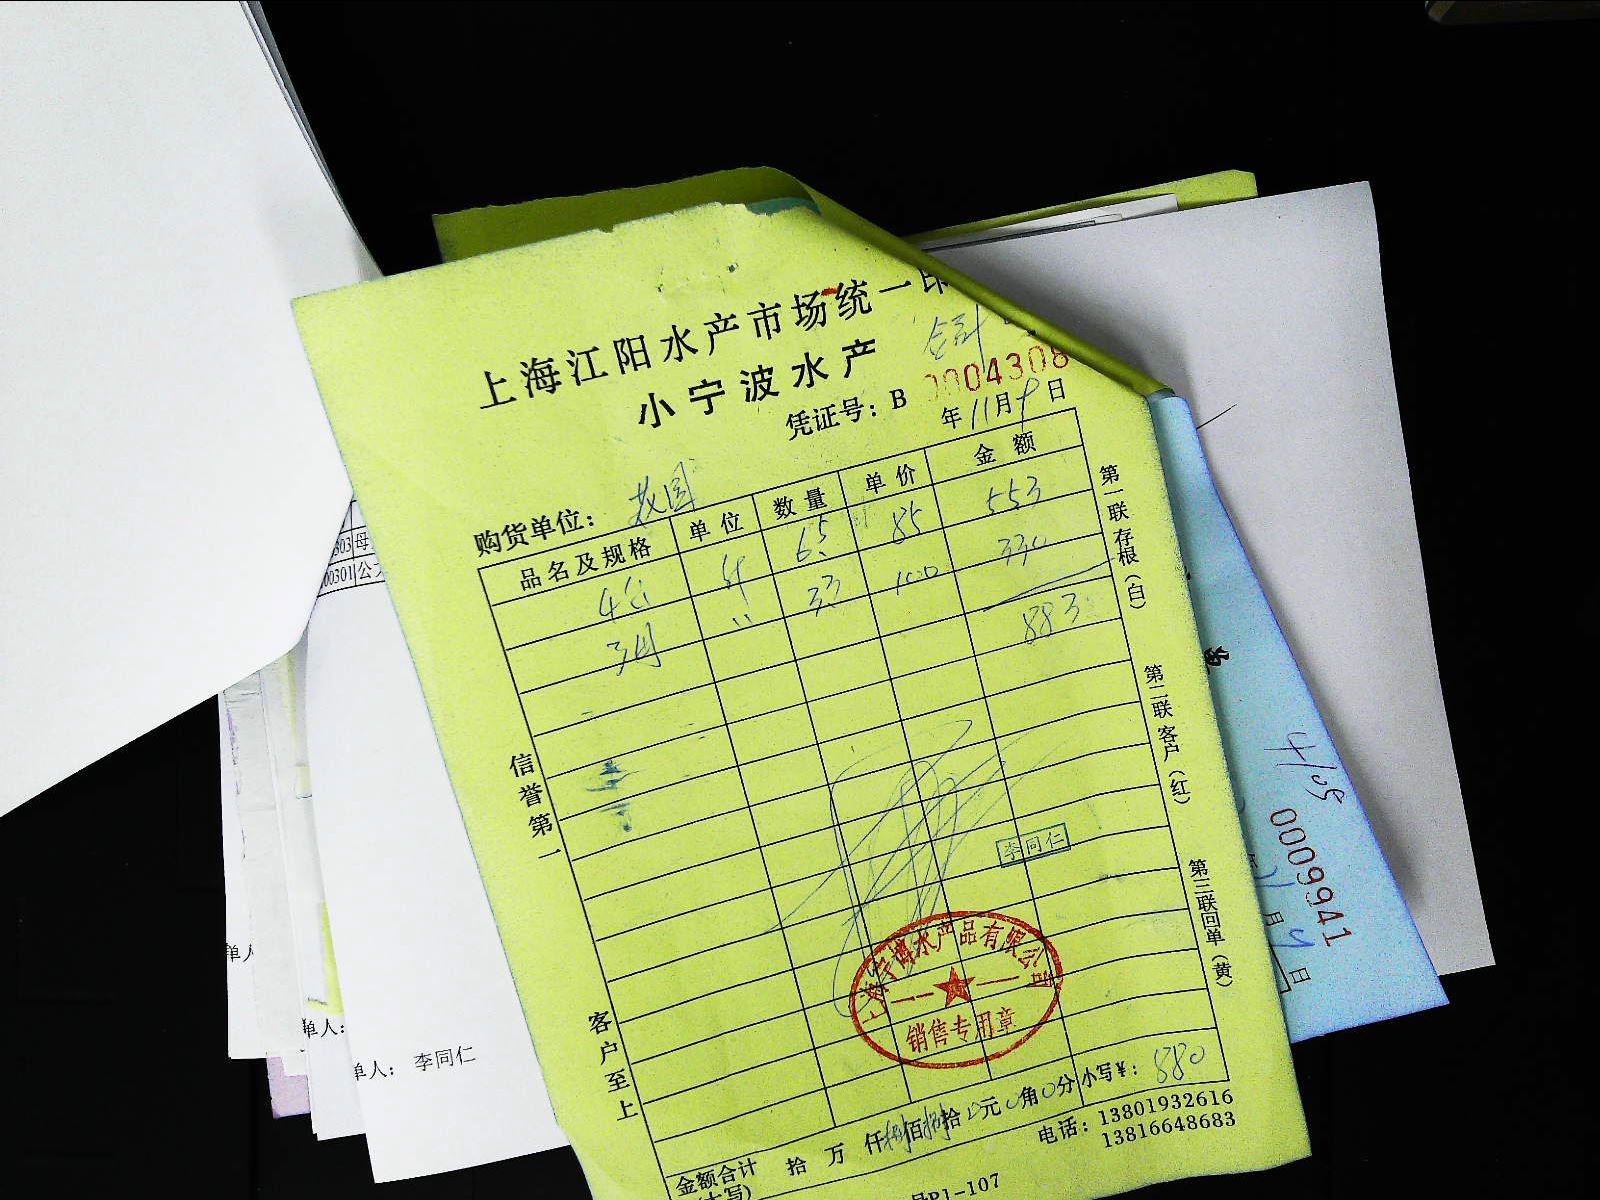 上海江阳水产市场统一印
小宁波水产
凭证号：B 0004308
年11月9日
购货单位：
品名及规格 单位 数量 单价 金额
4公 斤 6.5 85 553
3母 〃 3.3 100 330
883
信誉第一
客户至上
第一联存根（白）
第二联客户（红）
第三联回单（黄）
李同仁
上海宁博水产品有限公司
销售专用章
金额合计 拾 万 仟捌佰捌拾0元0角0分 小写￥：880
（大写）
电话：13801932616
13816648683
号P1-107
303 母
00301 公
单人
单人：
单人： 李同仁
0009941
月
日